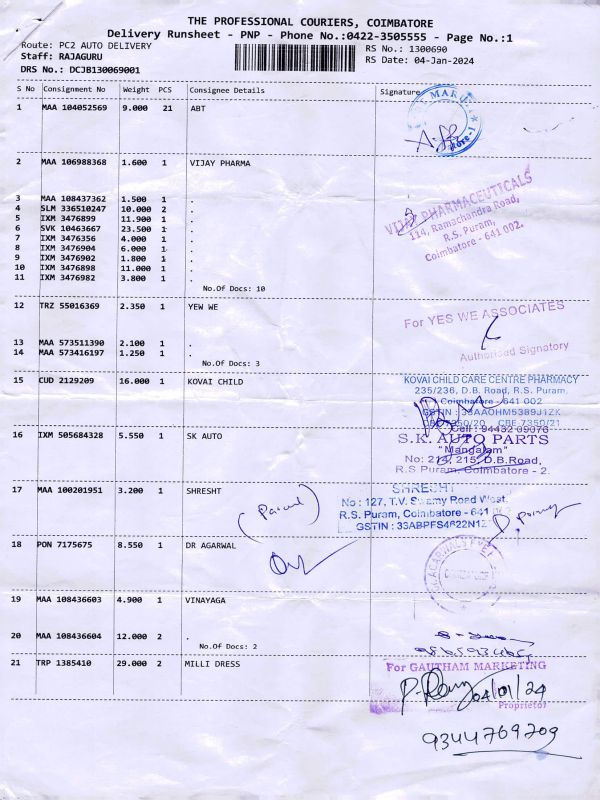 THE PROFESSIONAL COURIERS, COIMBATORE
Delivery Runsheet - PNP - Phone No.:0422-3505555 - Page No.:1
Route: PC2 AUTO DELIVERY
RS No.: 1300690
Staff: RAJAGURU
RS Date: 04-Jan-2024
DRS No.: DCJB130069001
S No Consignment No Weight PCS Consignee Details Signature
1 MAA 104052569 9.000 21 ABT
2 MAA 106988368 1.600 1 VIJAY PHARMA
3 MAA 108437362 1.500 1 .
4 SLM 336510247 10.000 2 .
5 IXM 3476899 11.900 1 .
6 SVK 10463667 23.500 1 .
7 IXM 3476356 4.000 1 .
8 IXM 3476904 6.000 1 .
9 IXM 3476902 1.800 1 .
10 IXM 3476898 11.000 1 .
11 IXM 3476982 3.800 1 .
No.Of Docs: 10
VIJAY PHARMACEUTICALS
114, Ramachandra Road,
R.S. Puram,
Coimbatore - 641 002.
12 TRZ 55016369 2.350 1 YEW WE
For YES WE ASSOCIATES
13 MAA 573511390 2.100 1 .
14 MAA 573416197 1.250 1 .
No.Of Docs: 3
Authorised Signatory
15 CUD 2129209 16.000 1 KOVAI CHILD
KOVAI CHILD CARE CENTRE PHARMACY
235/236, D.B. Road, R.S. Puram,
Coimbatore - 641 002
GSTIN : 33AAOHM5389J1ZK
CBE 7350/20 CBE-7350/21
Cell : 94432 09076
16 IXM 505684328 5.550 1 SK AUTO
S.K. AUTO PARTS
"Mangalam"
No: 214, 215, D.B.Road,
R.S Puram, Coimbatore - 2.
17 MAA 100201951 3.200 1 SHRESHT
SHRESHT
No : 127, T.V. Swamy Road West,
R.S. Puram, Coimbatore - 641 002
GSTIN : 33ABPFS4622N1Z
(Parcel)
18 PON 7175675 8.550 1 DR AGARWAL
19 MAA 108436603 4.900 1 VINAYAGA
20 MAA 108436604 12.000 2 .
No.Of Docs: 2
21 TRP 1385410 29.000 2 MILLI DRESS
For GAUTHAM MARKETING
04/01/24
Proprietor
9344769209